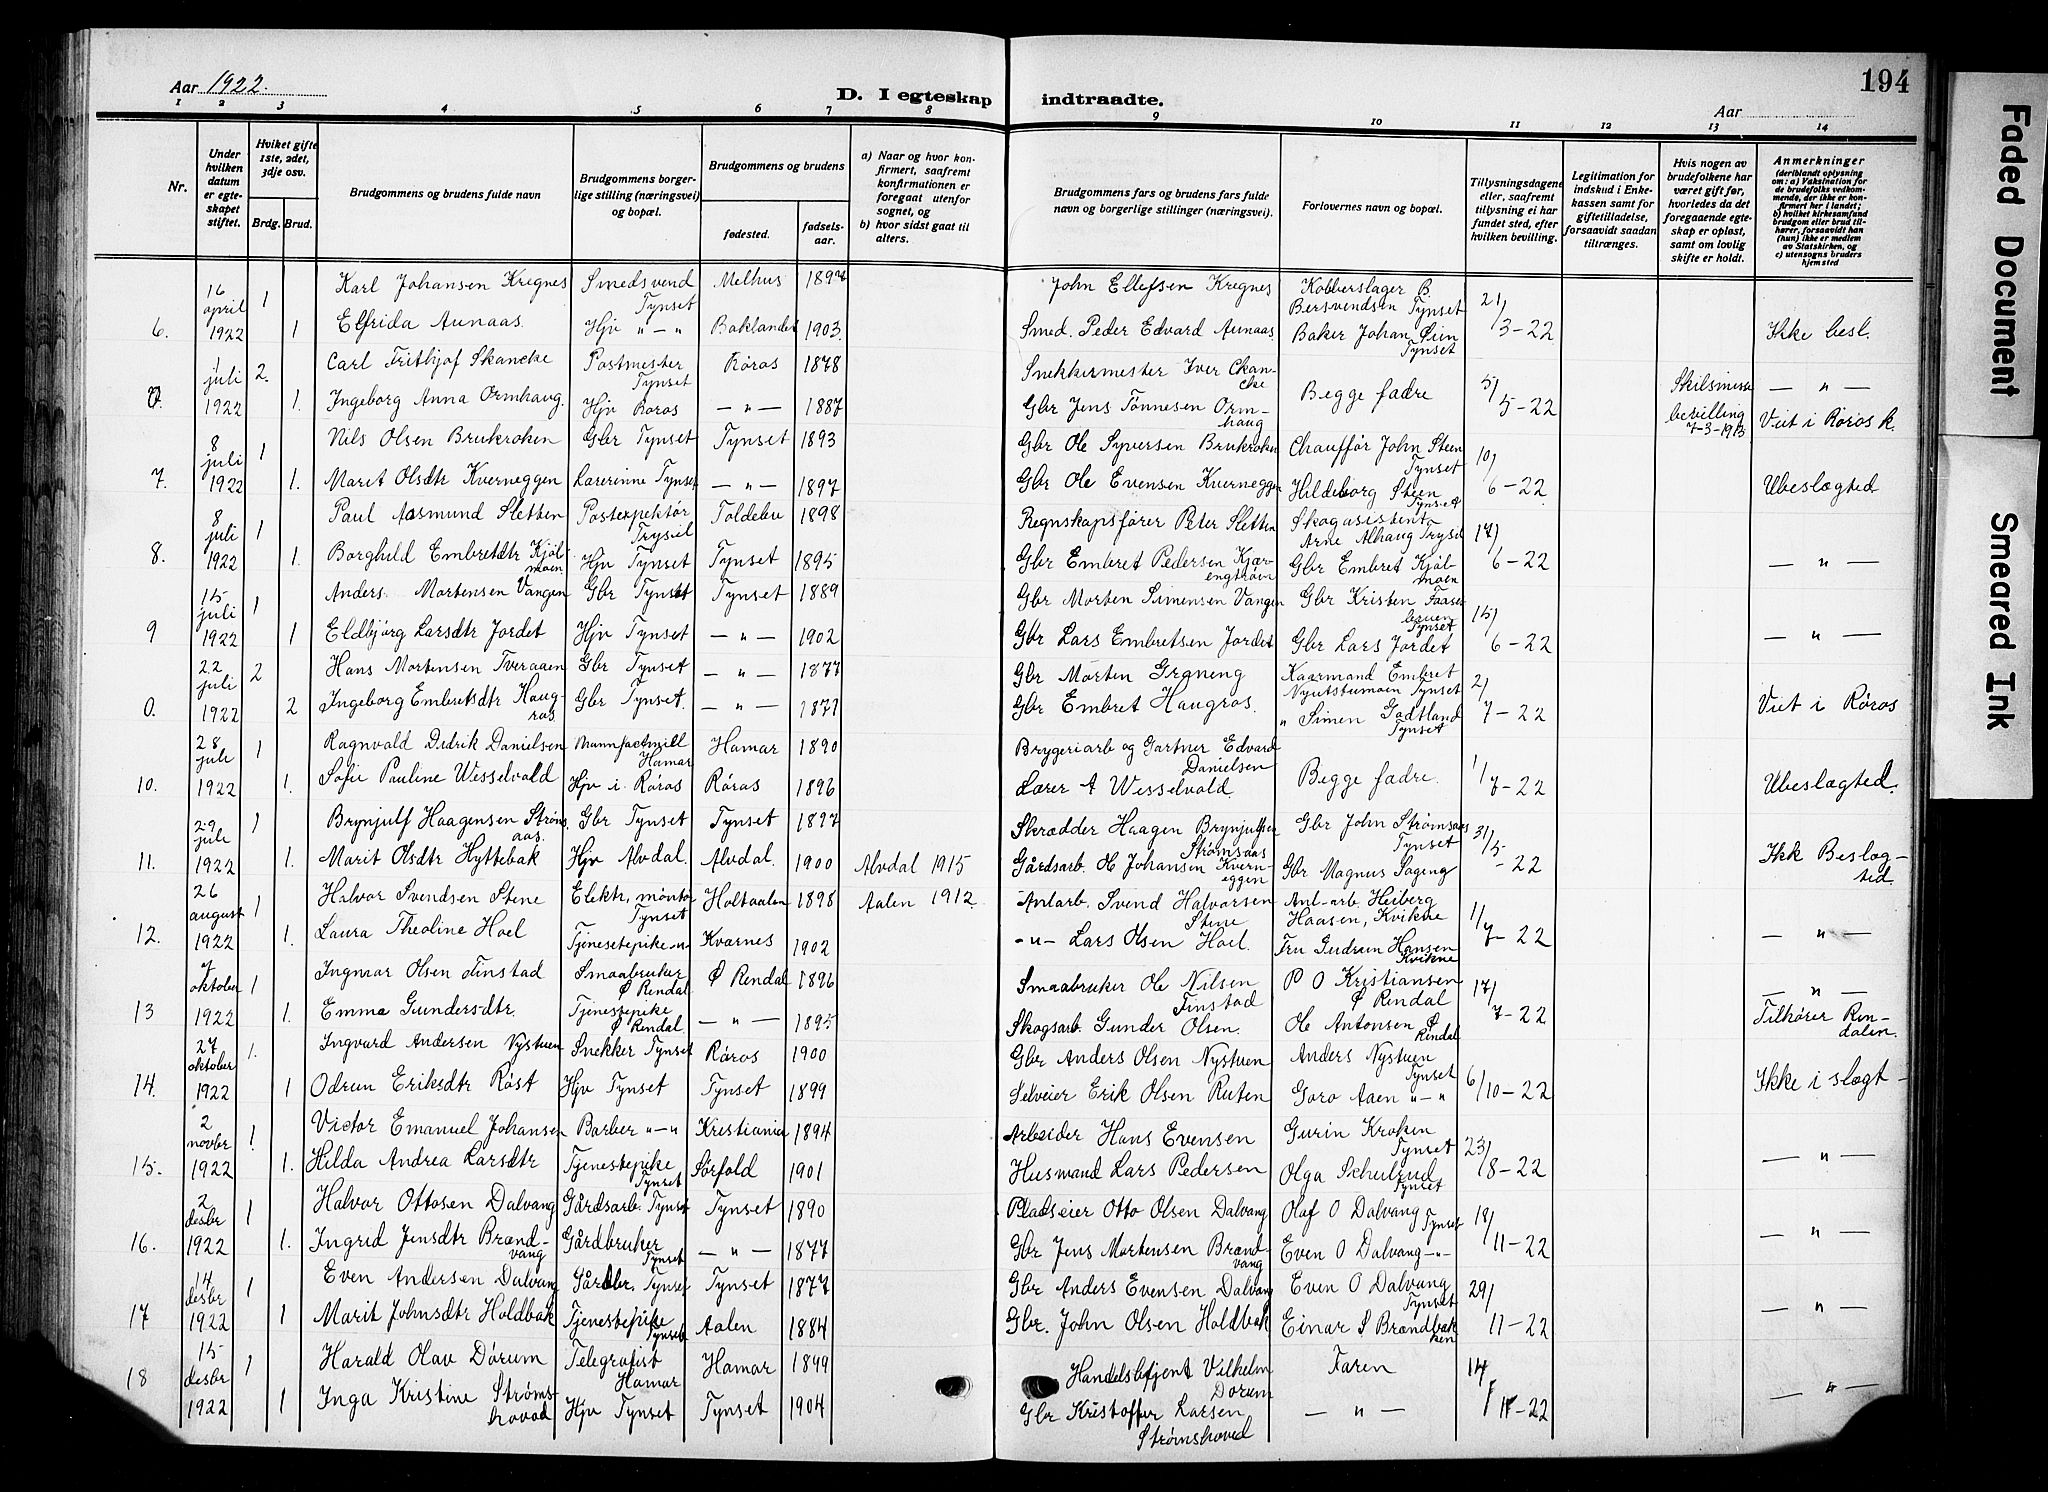 Aar 1922.
D. I egteskap indtraadte.
Aar
194
1 2 3 4 5 6 7 8 9 10 11 12 13 14
Nr.
Under hvilken datum er egteskapet stiftet.
Hvilket gifte 1ste, 2det, 3dje osv.
Brdg. Brud.
Brudgommens og brudens fulde navn
Brudgommens borgerlige stilling (næringsvei) og bopæl.
Brudgommens og brudens
fødested.
fødselsaar.
a) Naar og hvor konfirmert, saafremt konfirmationen er foregaat utenfor sognet, og
b) hvor sidst gaat til alters.
Brudgommens fars og brudens fars fulde navn og borgerlige stillinger (næringsvei).
Forlovernes navn og bopæl.
Tillysningsdagene eller, saafremt tillysning ei har fundet sted, efter hvilken bevilling.
Legitimation for indskud i Enkekassen samt for giftetilladelse, forsaavidt saadan tiltrænges.
Hvis nogen av brudefolkene har været gift før, hvorledes da det foregaaende egteskap er opløst, samt om lovlig skifte er holdt.
Anmerkninger (deriblandt oplysning om: a) Vaksination for de brudefolks vedkommende, der ikke er konfirmert her i landet; b) hvilket kirkesamfund brudgom eller brud tilhører, forsaavidt han (hun) ikke er medlem av Statskirken, og c) utensogns bruders hjemsted
16 april 1 Karl Johansen Kregnes Smedsvend Tynset Melhus 1897 John Ellefsen Kregnes Kobberslager B. Bersvendsen Tynset 21/
6. 1922 1 Elfrida Aunaas. Hjv " Baklandet 1903. Smed. Peder Edvard Aunaas Baker Johan Øien Tynset 3-22 Ikke besl.
1 juli 2. Carl Frithjof Skancke Postmester Tynset Røros 1878 Snekkermester Iver Skancke Begge fadre 5/ Skilsmisse — " —
0. 1922 1. Ingeborg Anna Ormhaug. Hjv Røros — " — 1887 Gbr Jens Tønnesen Ormhaug 5-22 bevilling 7-3-1913 Viet i Røros k.
8 juli 1 Nils Olsen Brukroken Gbr Tynset Tynset 1893 Gbr Ole Syversen Brukroken Chauffør John Steen Tynset 10/
7. 1922 1. Marit Olsdtr Kverneggen Lærerinne Tynset — " — 1897 Gbr Ole Evensen Kverneggen Hildeborg Steen Tynset 6-22 Ubeslægted
8 juli 1 Paul Aasmund Sletten Postexpektør Trysil Toldelev 1898 Regnskapsfører Peter Sletten Skogasistent Arne Alhaug Trysil 17/
8. 1922 1. Borghild Embretdtr Kjølmoen Hjv Tynset Tynset 1895 Gbr Embret Pedersen Kjærengtrøen Gbr Embret Kjølmoen 6-22 — " —
15 juli 1 Anders Mortensen Vangen Gbr Tynset Tynset 1889 Gbr Morten Simensen Vangen Gbr Kristen Tynset 15/
9 1922 1 Eldbjørg Larsdtr Jordet Hjv Tynset — " — 1902 Gbr Lars Embretsen Jordet Gbr Lars Jordet 6-22 — " —
22 juli 2 Hans Mortensen Tveraaen Gbr Tynset — " — 1877 Gbr Morten Graneng Kaarmand Embret Nyutstumoen Tynset 2/
0. 1922 2 Ingeborg Embretsdtr Haugros Gbr Tynset. — " — 1871 Gbr Embret Haugros. " Simen Godtland Tynset 7-22 Viet i Røros
28 juli 1 Ragnvald Didrik Danielsen Hamar Hamar 1890 Brygeriarb og Gartner Edvard Danielsen Begge fadre. 1/
10. 1922 1. Sofie Pauline Wesselvold Hjv i. Røros Røros 1896 Lærer A Wesselvold. 7-22 Ubeslægted.
29 juli 1 Brynjulf Haagensen Strømsaas. Gbr Tynset Tynset 1897 Skrædder Haagen Brynjulfsen Strømsaas Gbr John Strømsaas Tynset 31/
11. 1922 1. Marit Olsdtr Hyttebak Hjv Alvdal. Alvdal. 1900 Alvdal 1915 Gårdsarb. O Johansen Kverneggen Gbr Magnus Sageng 5-22 Ikk Beslægted.
26 august 1 Halvor Svendsen Stene Elektr, montør Tynset Holtaalen 1898 Aalen 1912. Anlarb. Svend Halvorsen Stene Anl-arb. Heiberg Haasen, Kvikne 1/
12. 1922 1. Laura Theoline Hoel Tjenestepike " Kvarnes 1902 — " — Lars Olsen Hoel. Fru Gudrun Hansen Kvikne 7-22 — " —
7 oktober 1 Ingmar Olsen Finstad Smaabruker Ø Rendal Ø Rendal 1896 Smaabruker Ole Nilsen Finstad P O Kristiansen Ø Rendal 17/ — " —
13 1922 1. Emma Gundersdtr. Tjenestepike Ø Rendal. — " — 1895 Skogsarb. Gunder Olsen. Ole Antonsen Ø Rendal 7-22 Tilhører Rendalen.
27 oktober 1. Ingvard Andersen Nystuen Snekker Tynset Røros 1900 Gbr Anders Olsen Nystuen Anders Nystuen Tynset 6/
14. 1922 1 Odrun Eriksdtr Røst Hjv Tynset Tynset 1899 Selveier Erik Olsen Ruten Goro Aaen " — " 10-22 Ikke i slægt —
2 novbr 1. Victor Emanuel Johansen Barber " — " Kristiania 1894 Arbeider Hans Evensen Gurin Kroken Tynset 23/
15. 1922 1. Hilda Andrea Larsdtr Tjenestepike Tynset Sørfold 1901 Husmand Lars Pedersen Olga Schulrud Tynset 8-22 — " —
2 desbr 1 Halvor Ottosen Dalvang Gårdsarb. Tynset Tynset 1890 Pladseier Otto Olsen Dalvang Olaf O Dalvang Tynset 18/
16. 1922 1. Ingrid Jensdtr Brændvang Gårdbruker Tynset — " — 1877 Gbr Jens Mortensen Brændvang Even O Dalvang — " — 11-22 — " —
14 desbr 1 Even Andersen Dalvang Gårdbr. Tynset Tynset 1877 Gbr Anders Evensen Dalvang Even O Dalvang Tynset 29/
17 1922 1 Marit Johnsdtr Holdbak Tjenestepike Tynset Aalen 1884 Gbr. John Olsen Holdbak Einar S Brændbakken 11-22 — " —
15 desbr 1 Harald Olav Dørum Telegrafist Hamar Hamar 1899 Handelsbetjent Vilhelm Dørum Faren 14/
18 1922 1 Inga Kristine Strømshovod Hjv Tynset Tynset 1904 Gbr Kristoffer Larsen Strømshoved — " — 11-22 — " —
Faded Document
Smeared Ink